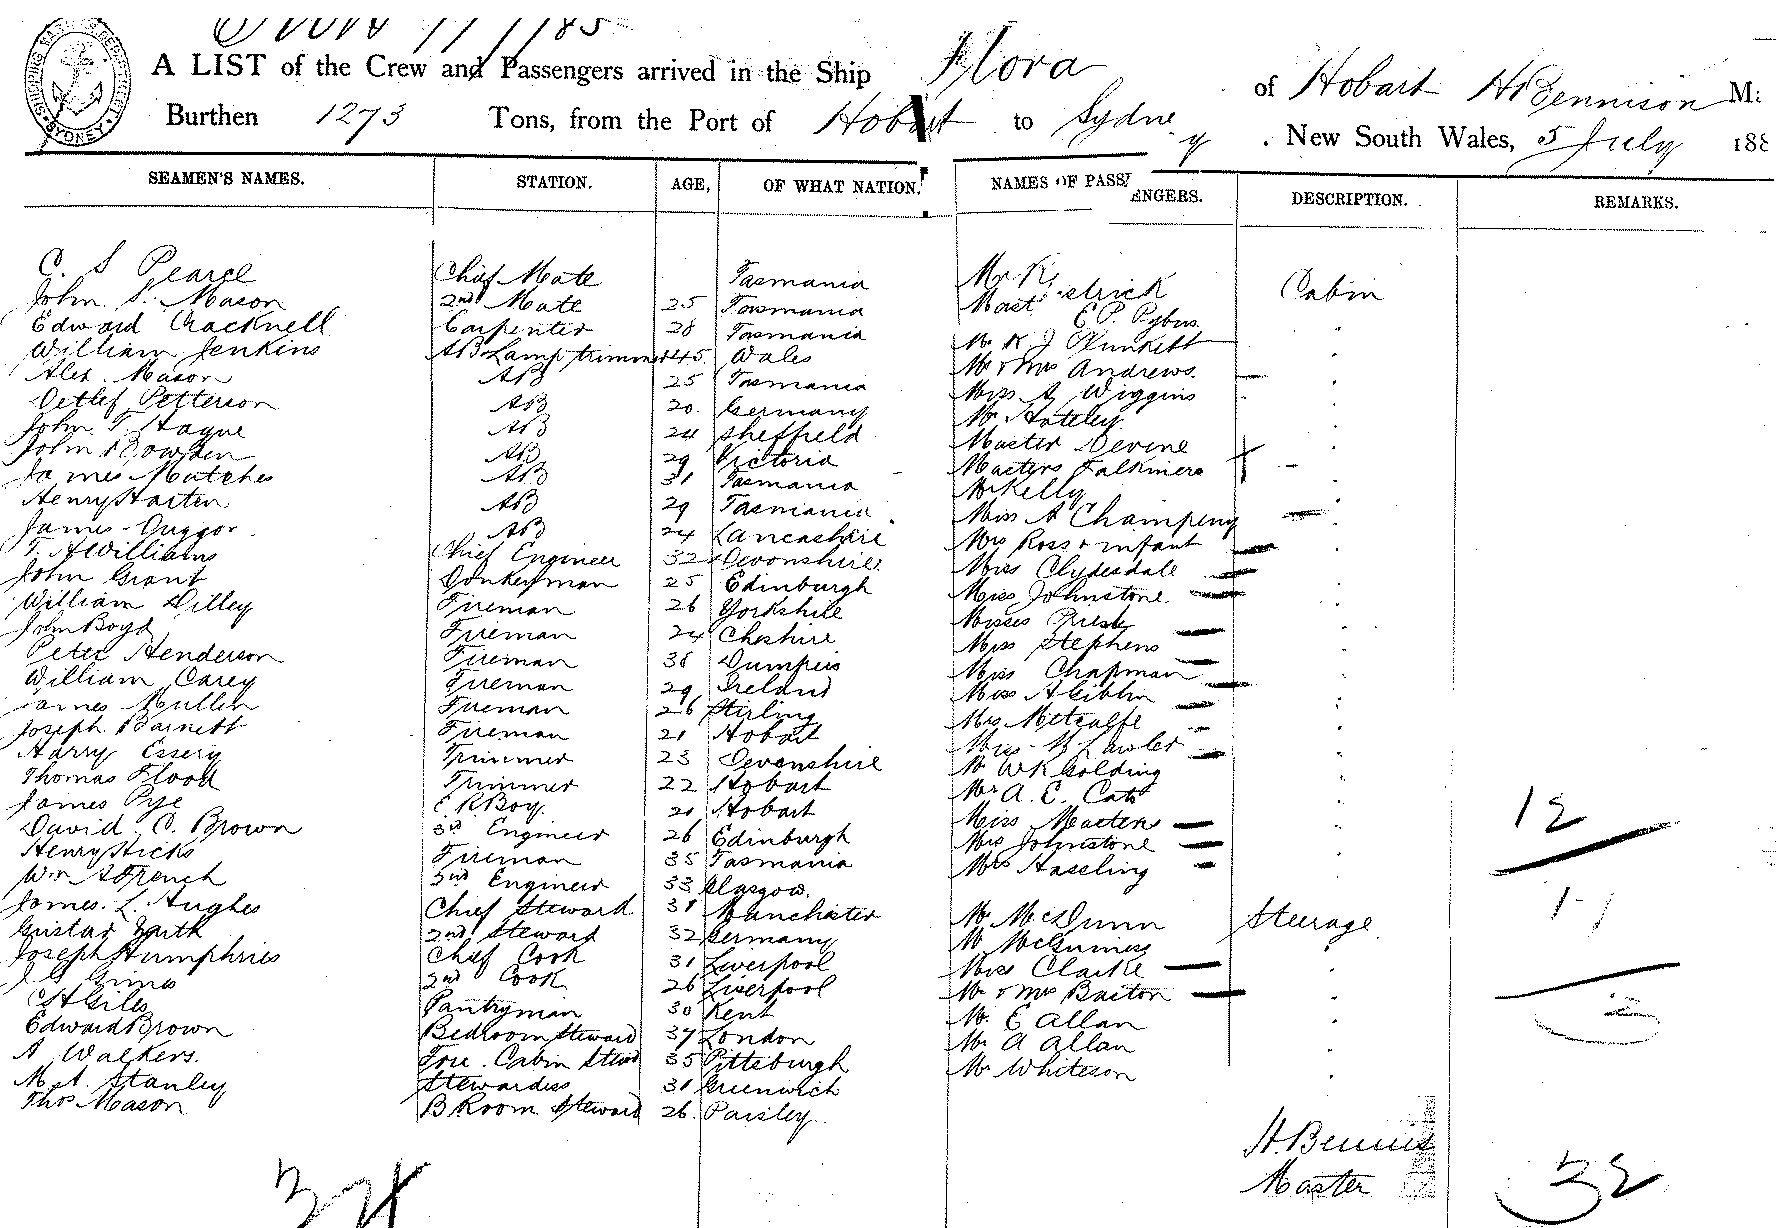 A LIST of the Crew and Passengers arrived in the Ship Flora of Hobart H Bennison
Burthen 1273 Tons, from the Port of Hobart to Sydney. New South Wales, 5 July 188
SEAMEN'S NAMES. STATION. AGE, OF WHAT NATION. NAMES OF PASSENGERS. DESCRIPTION. REMARKS.
C. S Pearce Chief Mate Tasmania Mr Cabin
John S. Mason 2nd Mate 25 Tasmania Mast E P. Pybus
Edward Cracknell Carpenter 28 Tasmania Mr K J Plunkett
William Jenkins AB Lamp trimmer 45 Wales Mr & Mrs Andrews
Alex. Mason AB 25 Tasmania Miss A Wiggins
Detlef Petterson AB 20 Germany Mr Hateley
John. T. Hague AB 24 Sheffield Master Devine
John Bowden AB 29 Victoria Masters Falkiners
James Matches AB 31 Tasmania Mr Kelly
Henry Harten AB 29 Tasmania Miss A Champeny
James AB 24 Lancashire Mrs Ross & infant
T. A Williams Chief Engineer 32 Devonshire Miss Clydesdale
John Grant Donkeyman 25 Edinburgh Miss Johnstone
William Dilley Fireman 26 Yorkshire Misses
John Boyd Fireman 24 Cheshire Miss Stephens
Peter Henderson Fireman 38 Dumfries Miss Chapman
William Carey Fireman 29 Ireland Miss A Giblin
James Mullen Fireman 26 Stirling Mrs Metcalfe
Joseph Barnett Fireman 21 Hobart Miss M Lawler
Harry Essery Trimmer 23 Devonshire Mr W K Golding
Thomas Flood Trimmer 22 Hobart Mr A. E. Cato
James Pye E. R Boy. 21 Hobart Miss Marten
David C. Brown 3rd Engineer 26 Edinburgh Mrs Johnstone
Henry Hicks Fireman 35 Tasmania Mrs Haseling
Wm A French 2nd Engineer 33 Glasgow.
James. L. Hughes Chief Steward 31 Manchester Mr McDunn Steerage
Gustav 2nd Steward 32 Germany Mr McGuiness
Joseph Humphries Chief Cook 31 Liverpool Miss Clarke
2nd Cook 26 Liverpool Mr & Mrs Barton
C H Giles Pantryman 30 Kent Mr. E Allan
Edward Brown Bedroom Steward 37 London Mr A Allan
A Walkers. Fore. Cabin Stew 35 Pittsburgh Mr Whiteson
M. A. Stanley Stewardess 31 Greenwich
Thos Mason B Room Steward 26 Paisley
12
H. Bennis
Master
32